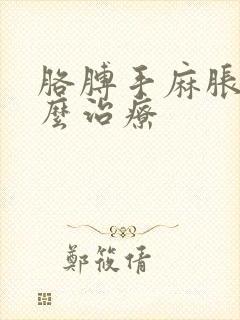 胳膊手麻脹
麼治療
鄭筱倩